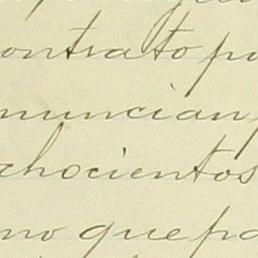 ontrato po
nuncian
chocientos
no que pa